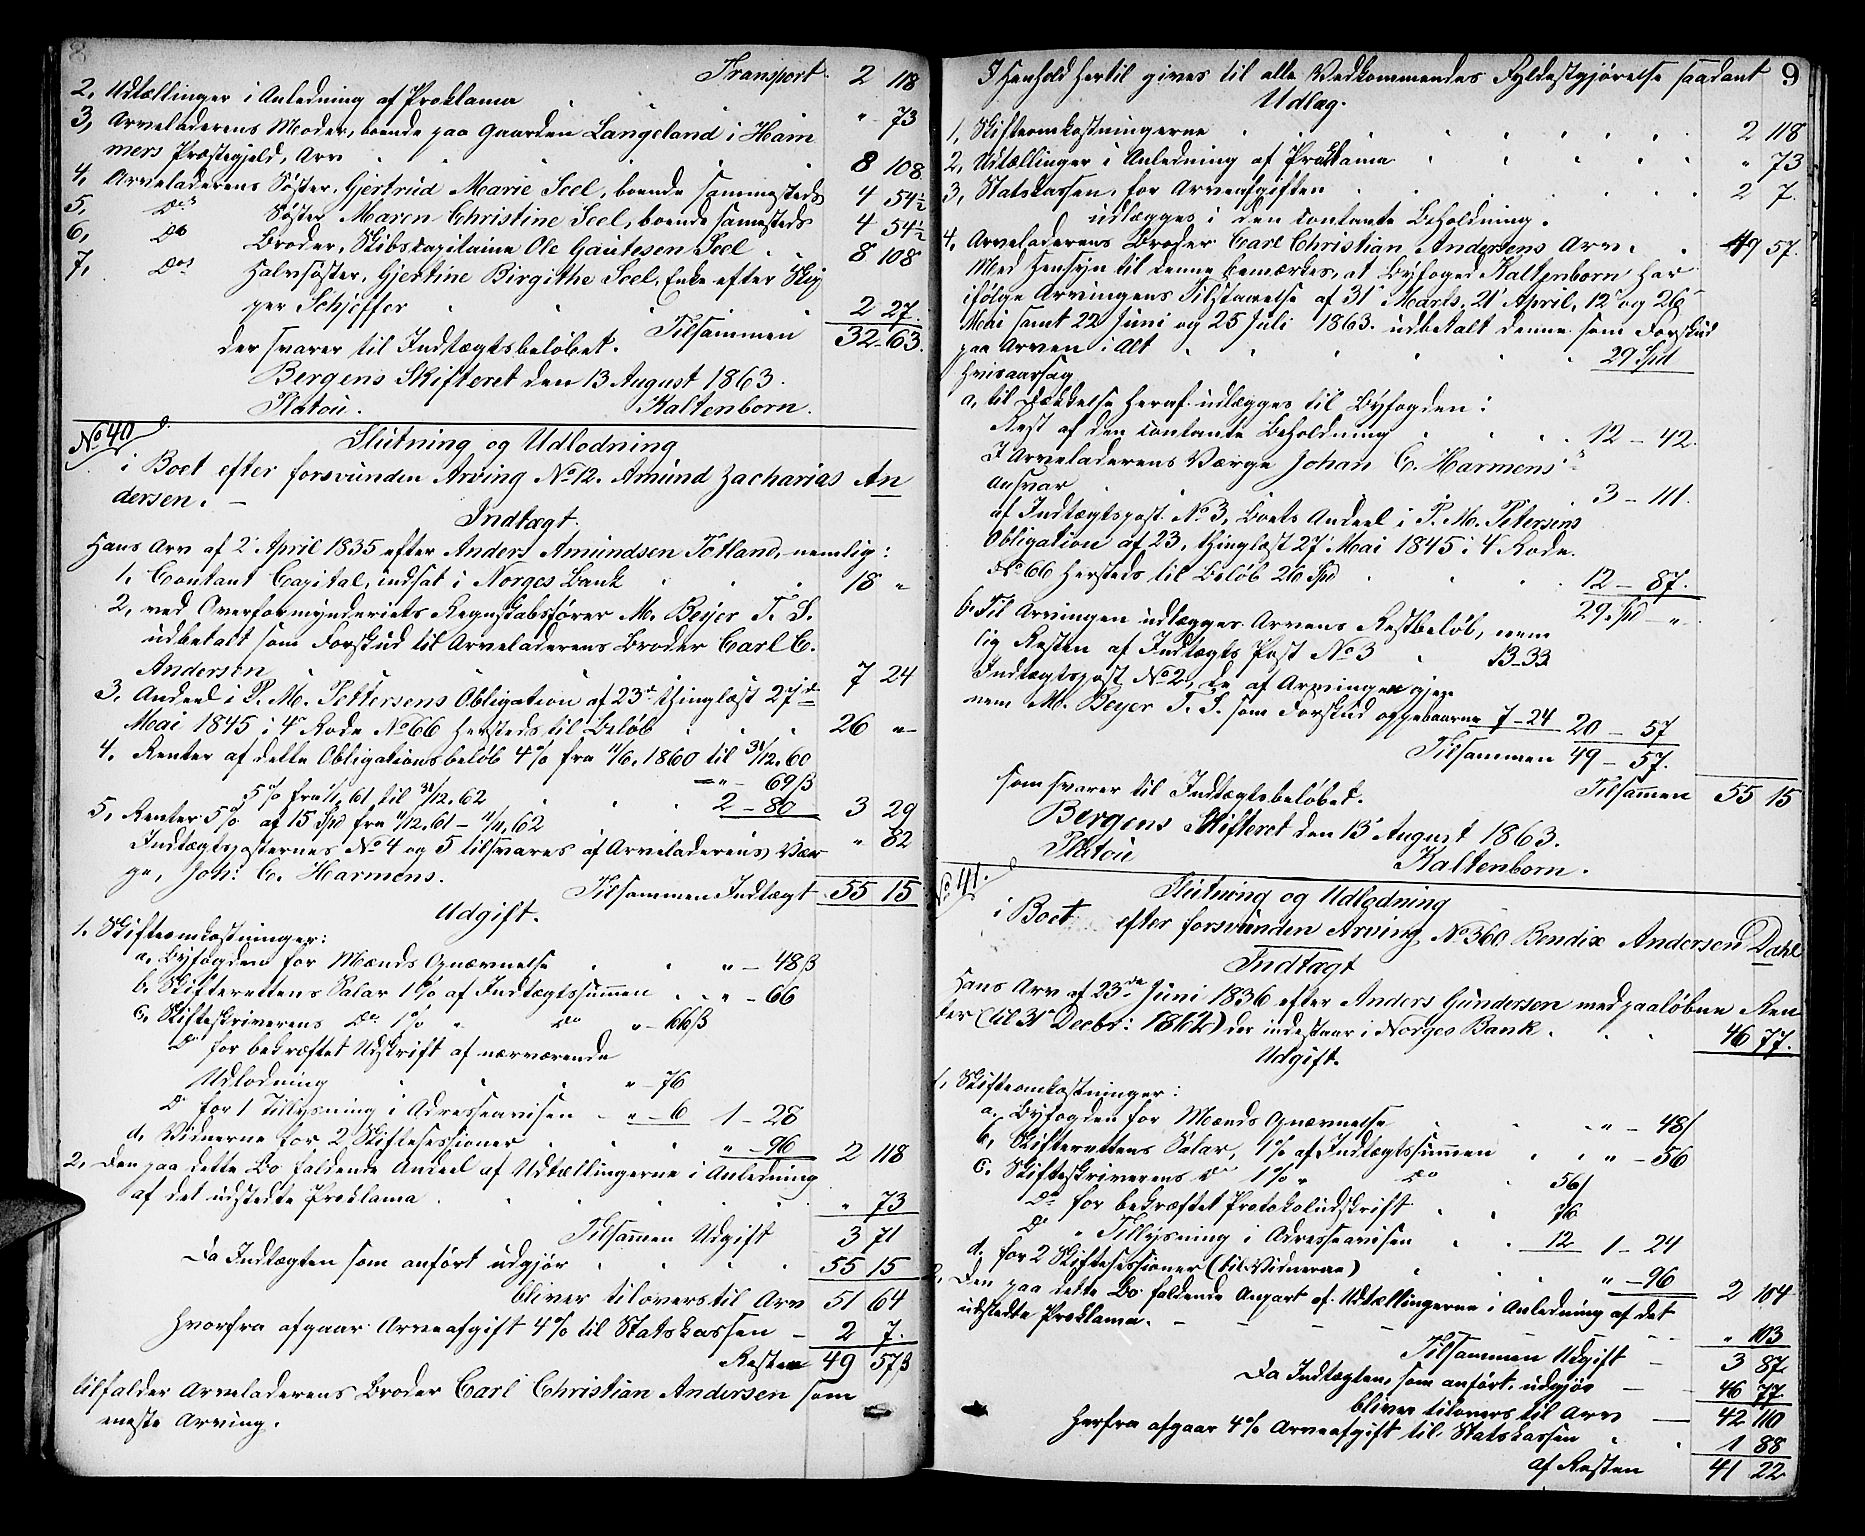 8
Transport 2 118
2, Udtællinger i Anledning af Proklama " 73
3, Arveladerens Moder, boende paa Gaarden Langeland i Ham
mers Præstegjeld, Arv 8 108
4, Arveladerens Søster, Gjertrud Marie Seel, boende sammesteds 4 54½
5, Do Søster Maren Christine Seel, boende samesteds 4 54½
6, Do Broder, Skibscapitaine Ole Gautesen Seel 8 108
7, Do Halvsøster, Gjertine Birgithe Seel, Enke efter Skip
per Schjøffer 2 27.
Tilsammen 32 63.
der svarer til Indtægtsbeløbet.
Bergens Skifteret den 13 August 1863.
Platou. Kaltenborn.
No 40. Slutning og Udlodning
i Boet efter forsvunden Arving No 12. Amund Zacharias An
dersen. –
Indtægt.
Hans Arv af 2 April 1835 efter Anders Amundsen Totland, nemlig:
1. Contant Capital, indsat i Norges Bank 18 "
2, ved Overformynderiets Regnskabsfører M. Beyer T. S.
udbetalt som Forskud til Arveladerens Broder Carl C.
Andersen 7 24
3, Andeel i P. M. Pettersens Obligation af 23d thinglæst 27d
Mai 1845 i 4e Rode No 66 Hersteds til Beløb 26 "
4, Renter af dette Obligationsbeløb 4% fra 11/6. 1860 til 31/12. 60
" – 69 ß
5% fra 1/1. 61 til 31/12. 62 2 – 80 3 29
5, Renter 5% af 15 Spd fra 11/12. 61 – 11/11. 62 " 82
Indtægtsposternes No 4 og 5 tilsvares af Arveladerens Vær
ge, Joh: C. Harmens.
Tilsammen Indtægt 55 15
Udgift.
1. Skifteomkostninger:
a, Byfogden for Mænds Opnævnelse " – 48 ß
b. Skifterettens Salar 1% af Indtægtssummen " – 66
c, Skifteskriverens Do 1% " Do " – 66 ß
Do for bekræftet Udskrift af nærværende
Udlodning " – 76
Do for 1 Tillysning i Adresseavisen " – 6 1 – 28
d, Vidnerne for 2 Skiftesessioner " – 96 2 118
2, Den paa dette Bo faldende Andeel af Udtællingerne i Anledning
af det udstedte Proklama " 73
Tilsammen Udgift 3 71
Da Indtægten som anført udgjør 55 15
bliver tilovers til Arv 51 64
hvorfra afgaar Arveafgift 4% til Statskassen – 2 7.
Resten 49 57 ß
tilfalder Arveladerens Broder Carl Christian Andersen som
neste Arving.
9
I Henhold hertil gives til alle Vedkommendes Fyldestgjørelse saadant
Udlæg.
1, Skifteomkostningerne 2 118
2, Udtællinger i Anledning af Proklama " 73
3, Statskassen, for Arveafgiften 2 7.
udlægges i den contante Beholdning.
4, Arveladerens Broder Carl Christian Andersens Arv 49 57.
Med Hensyn til denne bemærkes, at Byfoged Kaltenborn har
ifølge Arvingens Tilstaaelse af 31 Marts, 21 April, 12 og 26
Mai samt 22 Juni og 25 Juli 1863. udbetalt denne som Forskud
paa Arven i Alt 29 Spd
Hvisaarsag
a, til Dækkelse heraf udlægges til Byfogden:
Rest af den contante Beholdning 12 – 42.
I Arveladerens Værge Johan C. Harmens
Ansvar 3 – 111.
af Indtægtspost No 3, Boets Andeel i P. M. Petersens
Obligation af 23, thinglæst 27 Mai 1845 i 4 Rode
No 66 Hersteds til Beløb 26 Spd 12 – 87.
29 Spd – "
b. Til Arvingen udlægges Arvens Restbeløb, nem
lig Resten af Indtægts Post No 3 13 – 33
Indtægtspost No 2, de af Arvingen gjen
nem M. Beyer T. S. som Forskud oppebaarne 7 – 24 20 – 57
Tilsammen 49 – 57.
Tilsammen 55 15
som svarer til Indtægtsbeløbet.
Bergens Skifteret den 13 August 1863.
Platou Kaltenborn.
No 41. Slutning og Udlodning
i Boet efter forsvunden Arving No 360 Bendix Andersen Dahl
Indtægt
Hans Arv af 23de Juni 1836 efter Anders Gundersen med paaløbne Ren
ter (til 31 Decbr: 1862) der indestaar i Norges Bank. 46 77.
Udgift.
1, Skifteomkostninger:
a, Byfogden for Mænds Opnævnelse " – 48 ß
b, Skifterettens Salar, 1% af Indtægtssummen " – 56
c, Skifteskriverens Do 1% " Do 56 ß
Do for bekræftet Protokoludskrift 76
Do " Tillysning i Adresseavisen 12 1 – 24
d, for 2 Skiftesessioner (til Vidnerne) " – 96 2 104
2, Den paa dette Bo faldende Anpart af Udtællingerne i Anledning af det
udstedte Proklama. " 103
Tilsammen Udgift – 3 87
Da Indtægten, som anført, udgjør – 46 77.
bliver tilovers til Arv – 42 110
Herfra afgaar 4% Arveafgift til Statskassen 1 88
af Resten 41 22